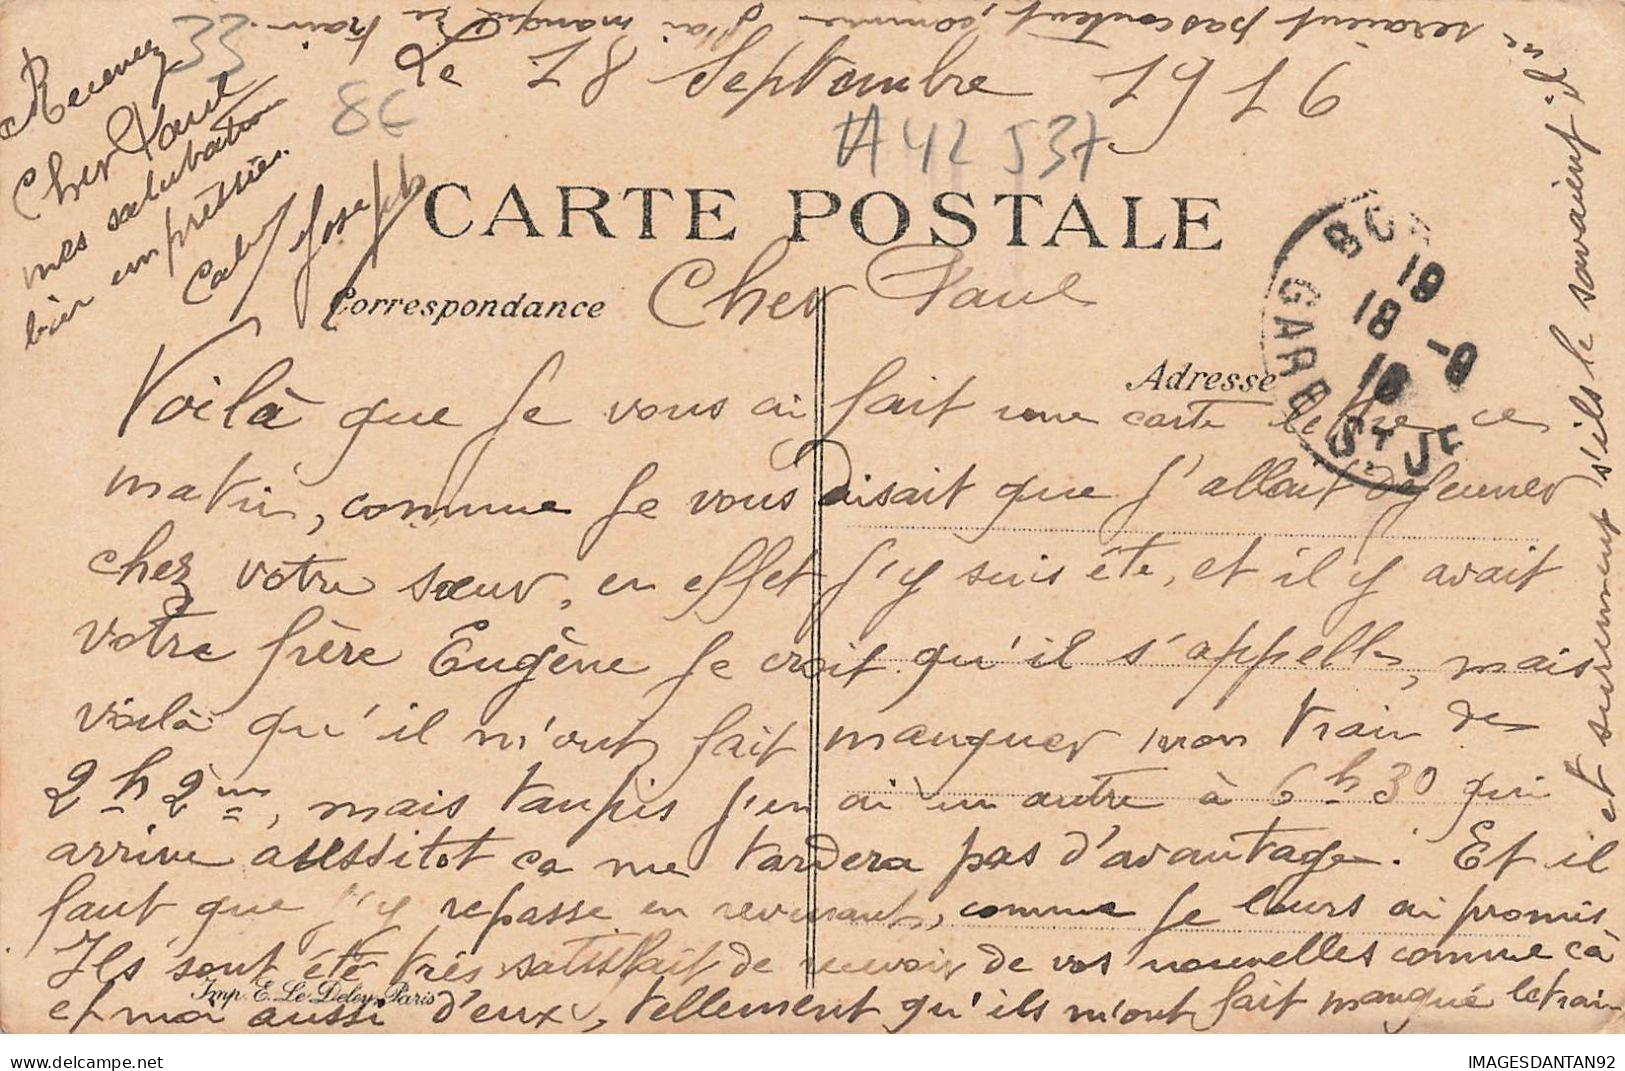 Le 18 Septembre 1916
33
8c
A42 537
CARTE POSTALE
Correspondance
Adresse
BO
19
18 -9
16
GARE ST JE
Cher Paul
Voilà que Je vous ai fait une carte lettre ce
matin, comme Je vous disait que J'allait dejeuner
chez votre sœur, en effet J'y suis été, et il y avait
votre frère Eugène Je croit qu'il s'appelle, mais
voilà qu'il m'ont fait manquer mon train de
2h 2m, mais tanpis J'en ai un autre à 6h30 qui
arrive aussitot ca me tardera pas d'avantage. Et il
faut que J'y repasse en revenant, comme Je leurs ai promis,
Ils sont été très satisfait de recevoir de vos nouvelles comme ca
et moi aussi d'eux, tellement qu'ils m'ont fait manqué le train
et surement s'ils le savaient il
ne seraient pas content, comme J'ai manqué ce train.
Recevez
Cher Paul
mes salutation
bien empressées.
Calvy Joseph
Imp. E. Le Deley, Paris
IMAGESDANTAN92
delcampe.net